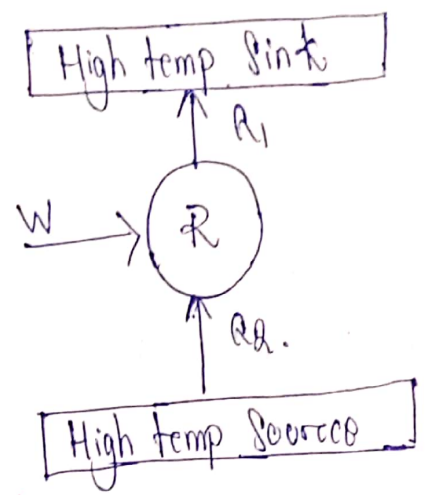 High temp Sink
Q1
W
R
Q2.
High temp Source